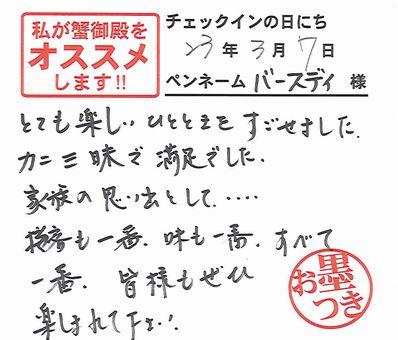 私が蟹御殿を
オススメ
します!!
チェックインの日にち
23年3月7日
ペンネーム バースディ 様
とても楽しいひとときをすごせました.
カニ三昧で満足でした.
家族の思い出として.....
接客も一番.味も一番.すべて
一番.皆様もぜひ
楽しまれて下さい!
お墨つき